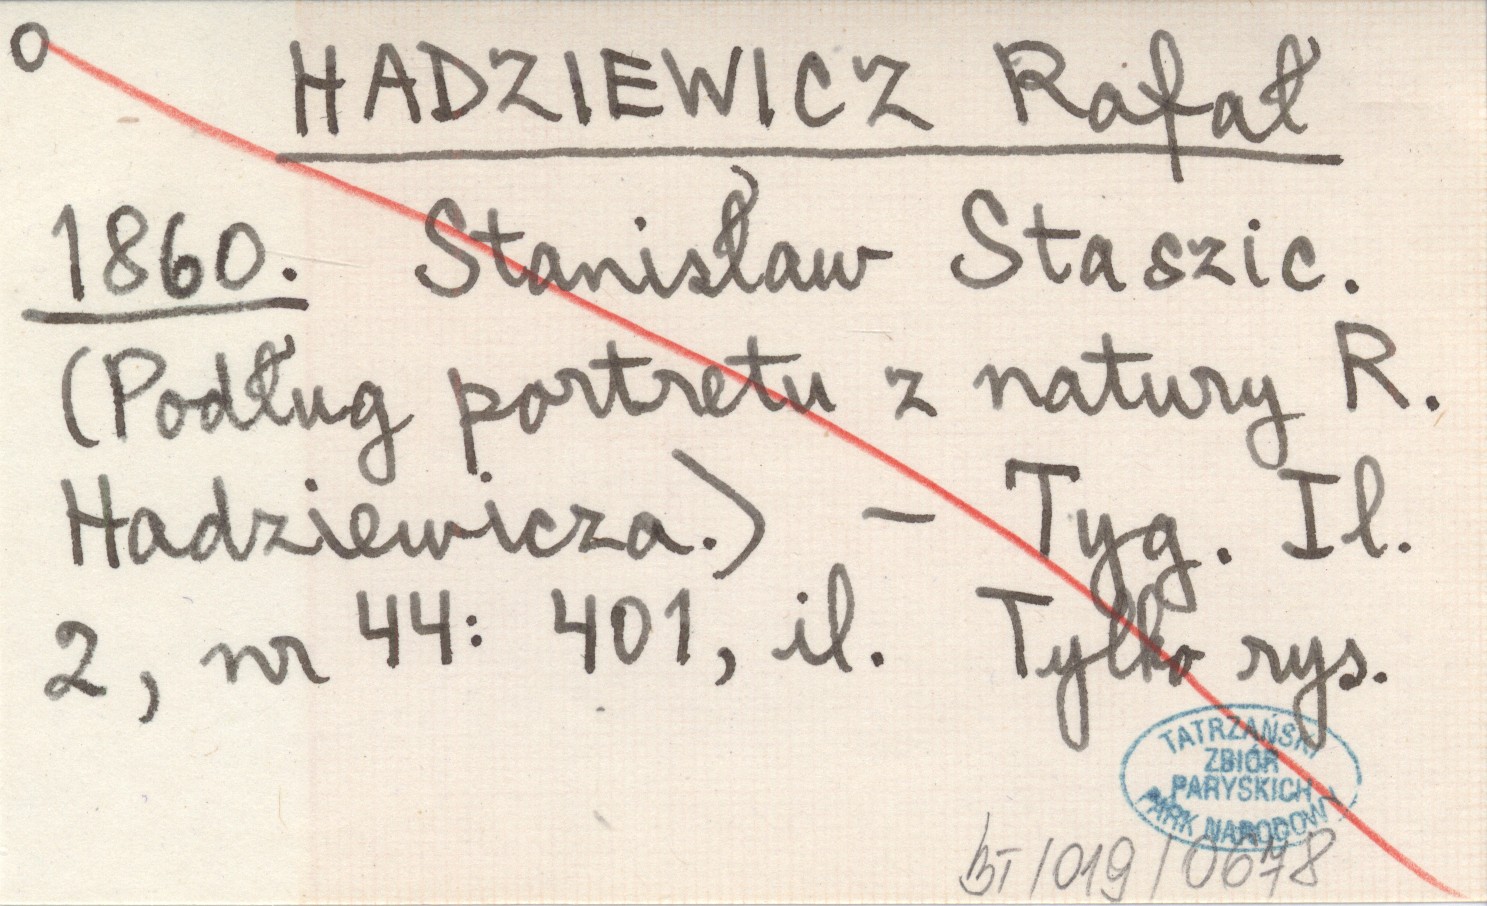 O
HADZIEWICZ Rafał
1860. Stanisław Staszic.
(Podług portretu z natury R.
Hadziewicza.) – Tyg. Il.
2, nr 44: 401, il. Tylko rys.
TATRZAŃSKI
ZBIÓR
PARYSKICH
PARK NARODOWY
BT/019/0678